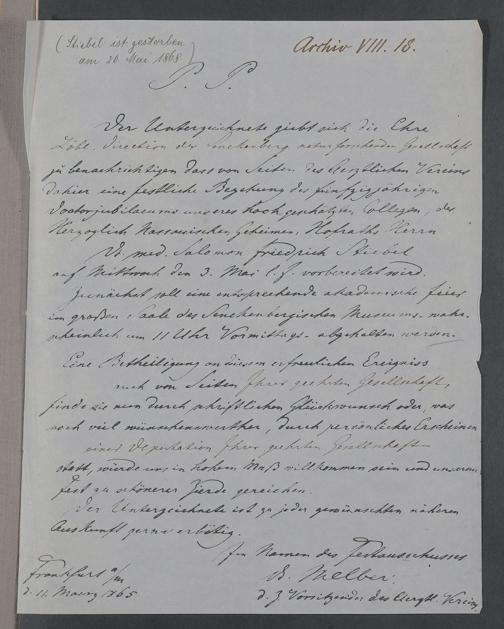 (Stiebel ist gestorben
am 20 Mai 1868)
Archiv VIII. 18.
P. P.
Der Unterzeichnete giebt sich die Ehre
Löbl. Direction der Senckenberg naturforschenden Gesellschaft
zu benachrichtigen dass von Seiten des Aerztlichen Vereins
dahier eine festliche Begehung des fünfzigjährigen
Doctorjubilaeums unseres hochgeschätzten Collegen, des
Herzoglich Nassauischen Geheimen Hofraths Herrn
Dr. med. Salomon Friedrich Stiebel
auf Mittwoch den 3. Mai l. J. vorbereitet wird.
Zunächst soll eine entsprechende akademische Feier
im großen Saale des Senckenbergischen Museums, wahr-
scheinlich um 11 Uhr Vormittags abgehalten werden.
Eine Betheiligung an diesem erfreulichen Ereigniss
auch von Seiten Ihrer geehrten Gesellschaft,
finde sie nun durch schriftlichen Glückwunsch oder, was
noch viel wünschenswerther, durch persönliches Erscheinen
einer Deputation Ihrer geehrten Gesellschaft
statt, würde uns in hohem Maß willkommen sein und unserem
Fest zu schönerer Zierde gereichen.
Der Unterzeichnete ist zu jeder gewünschten näheren
Auskunft gerne erbötig.
Im Namen des Festausschusses
Dr. Melber.
d. Z. Vorsitzender des Aerztl. Vereins
Frankfurt a/m
d. 11. Maerz 1865